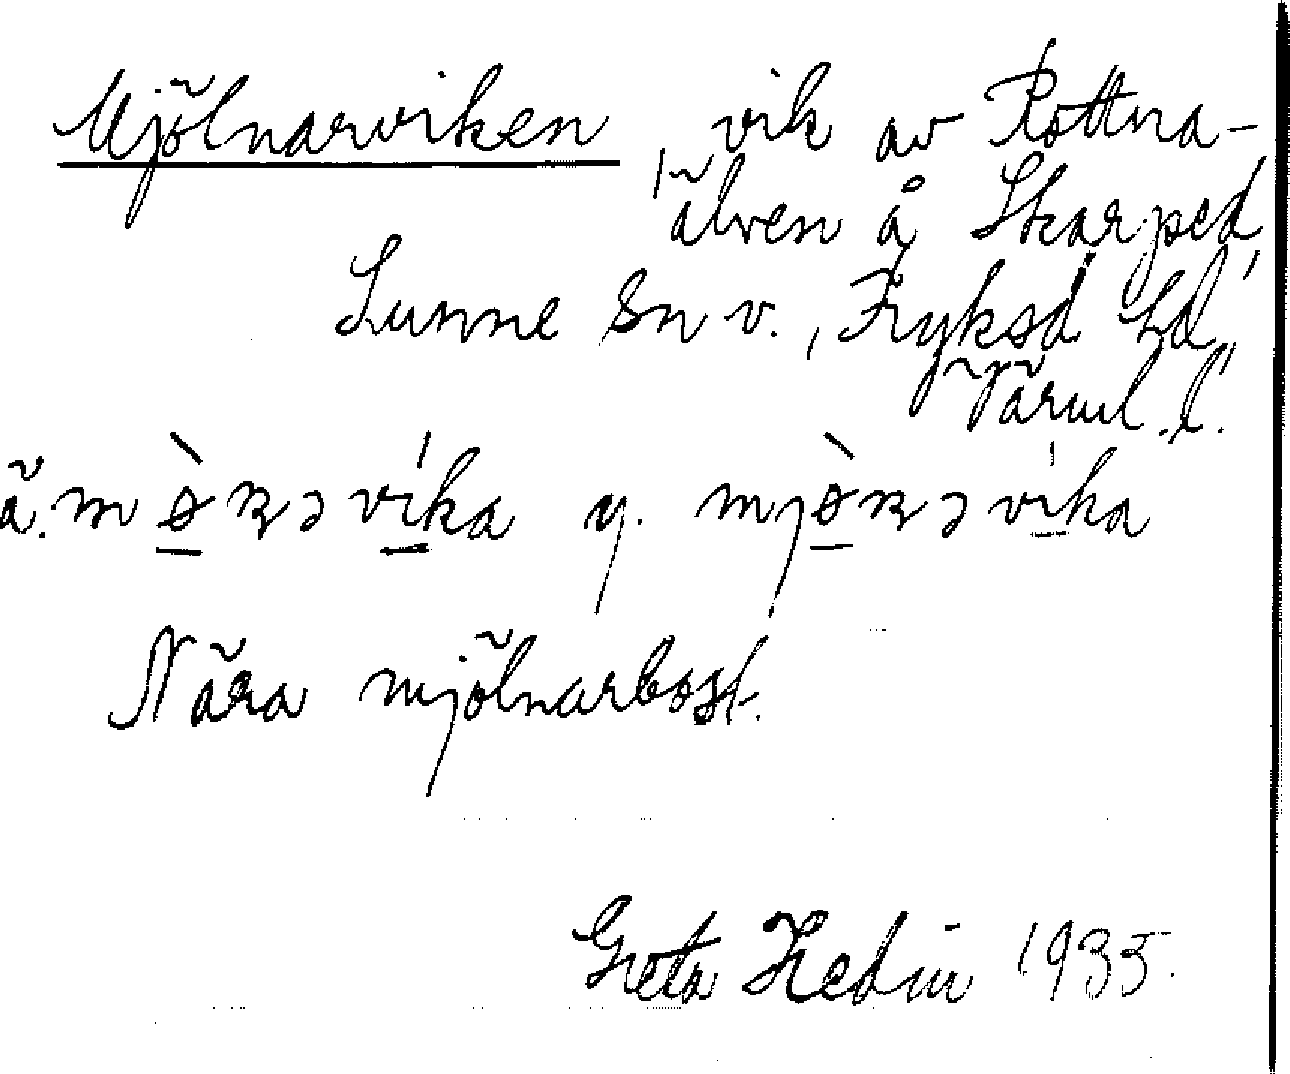 Mjölnarviken vik av Rottna-
älven å Skarped,
Sunne sn v., Fryksd hd,
Värml. l.
ä. mø̀ɴəvíka y. mjø̀ɴəvíka
Nära mjölnarbost.
Greta Hedin 1935.